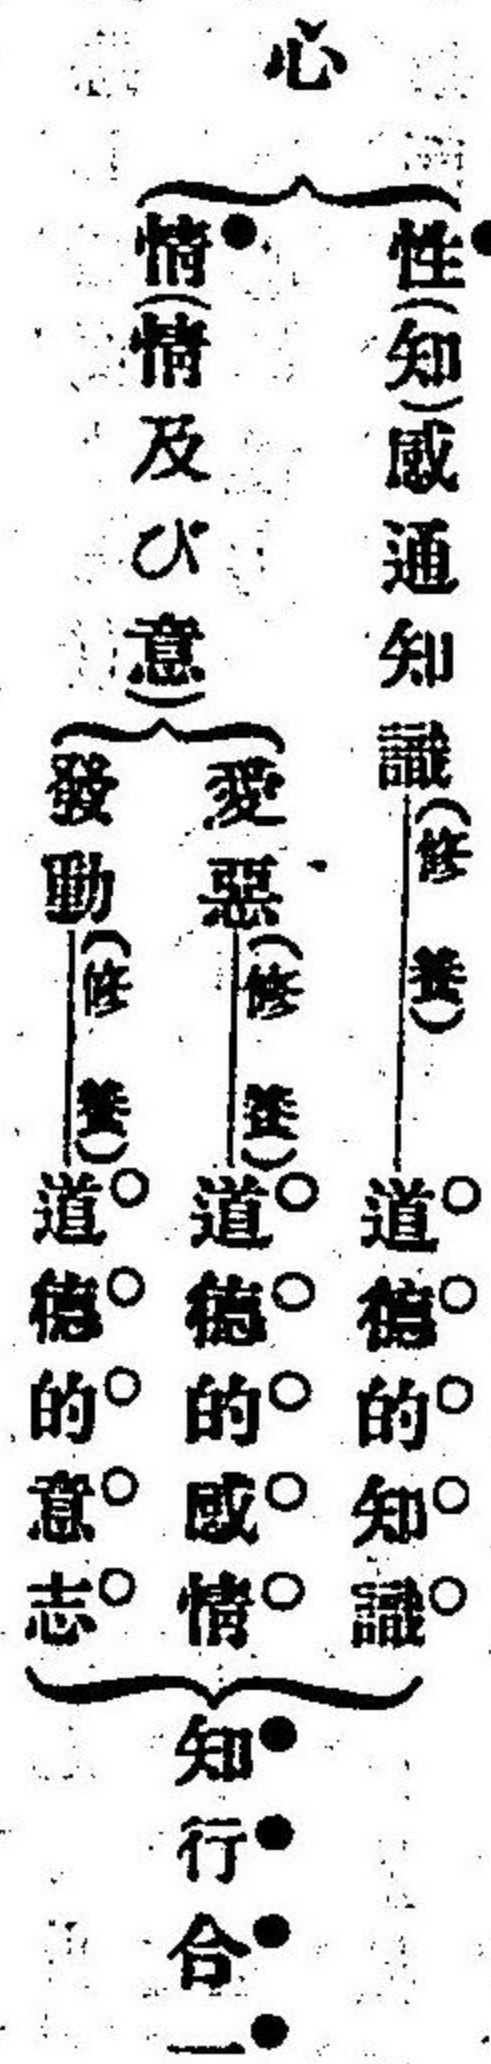 心
性(知)感通知識(修養)道德的知識
情(情及び意)
愛惡(修養)道德的感情
發動(修養)道德的意志
知行合一